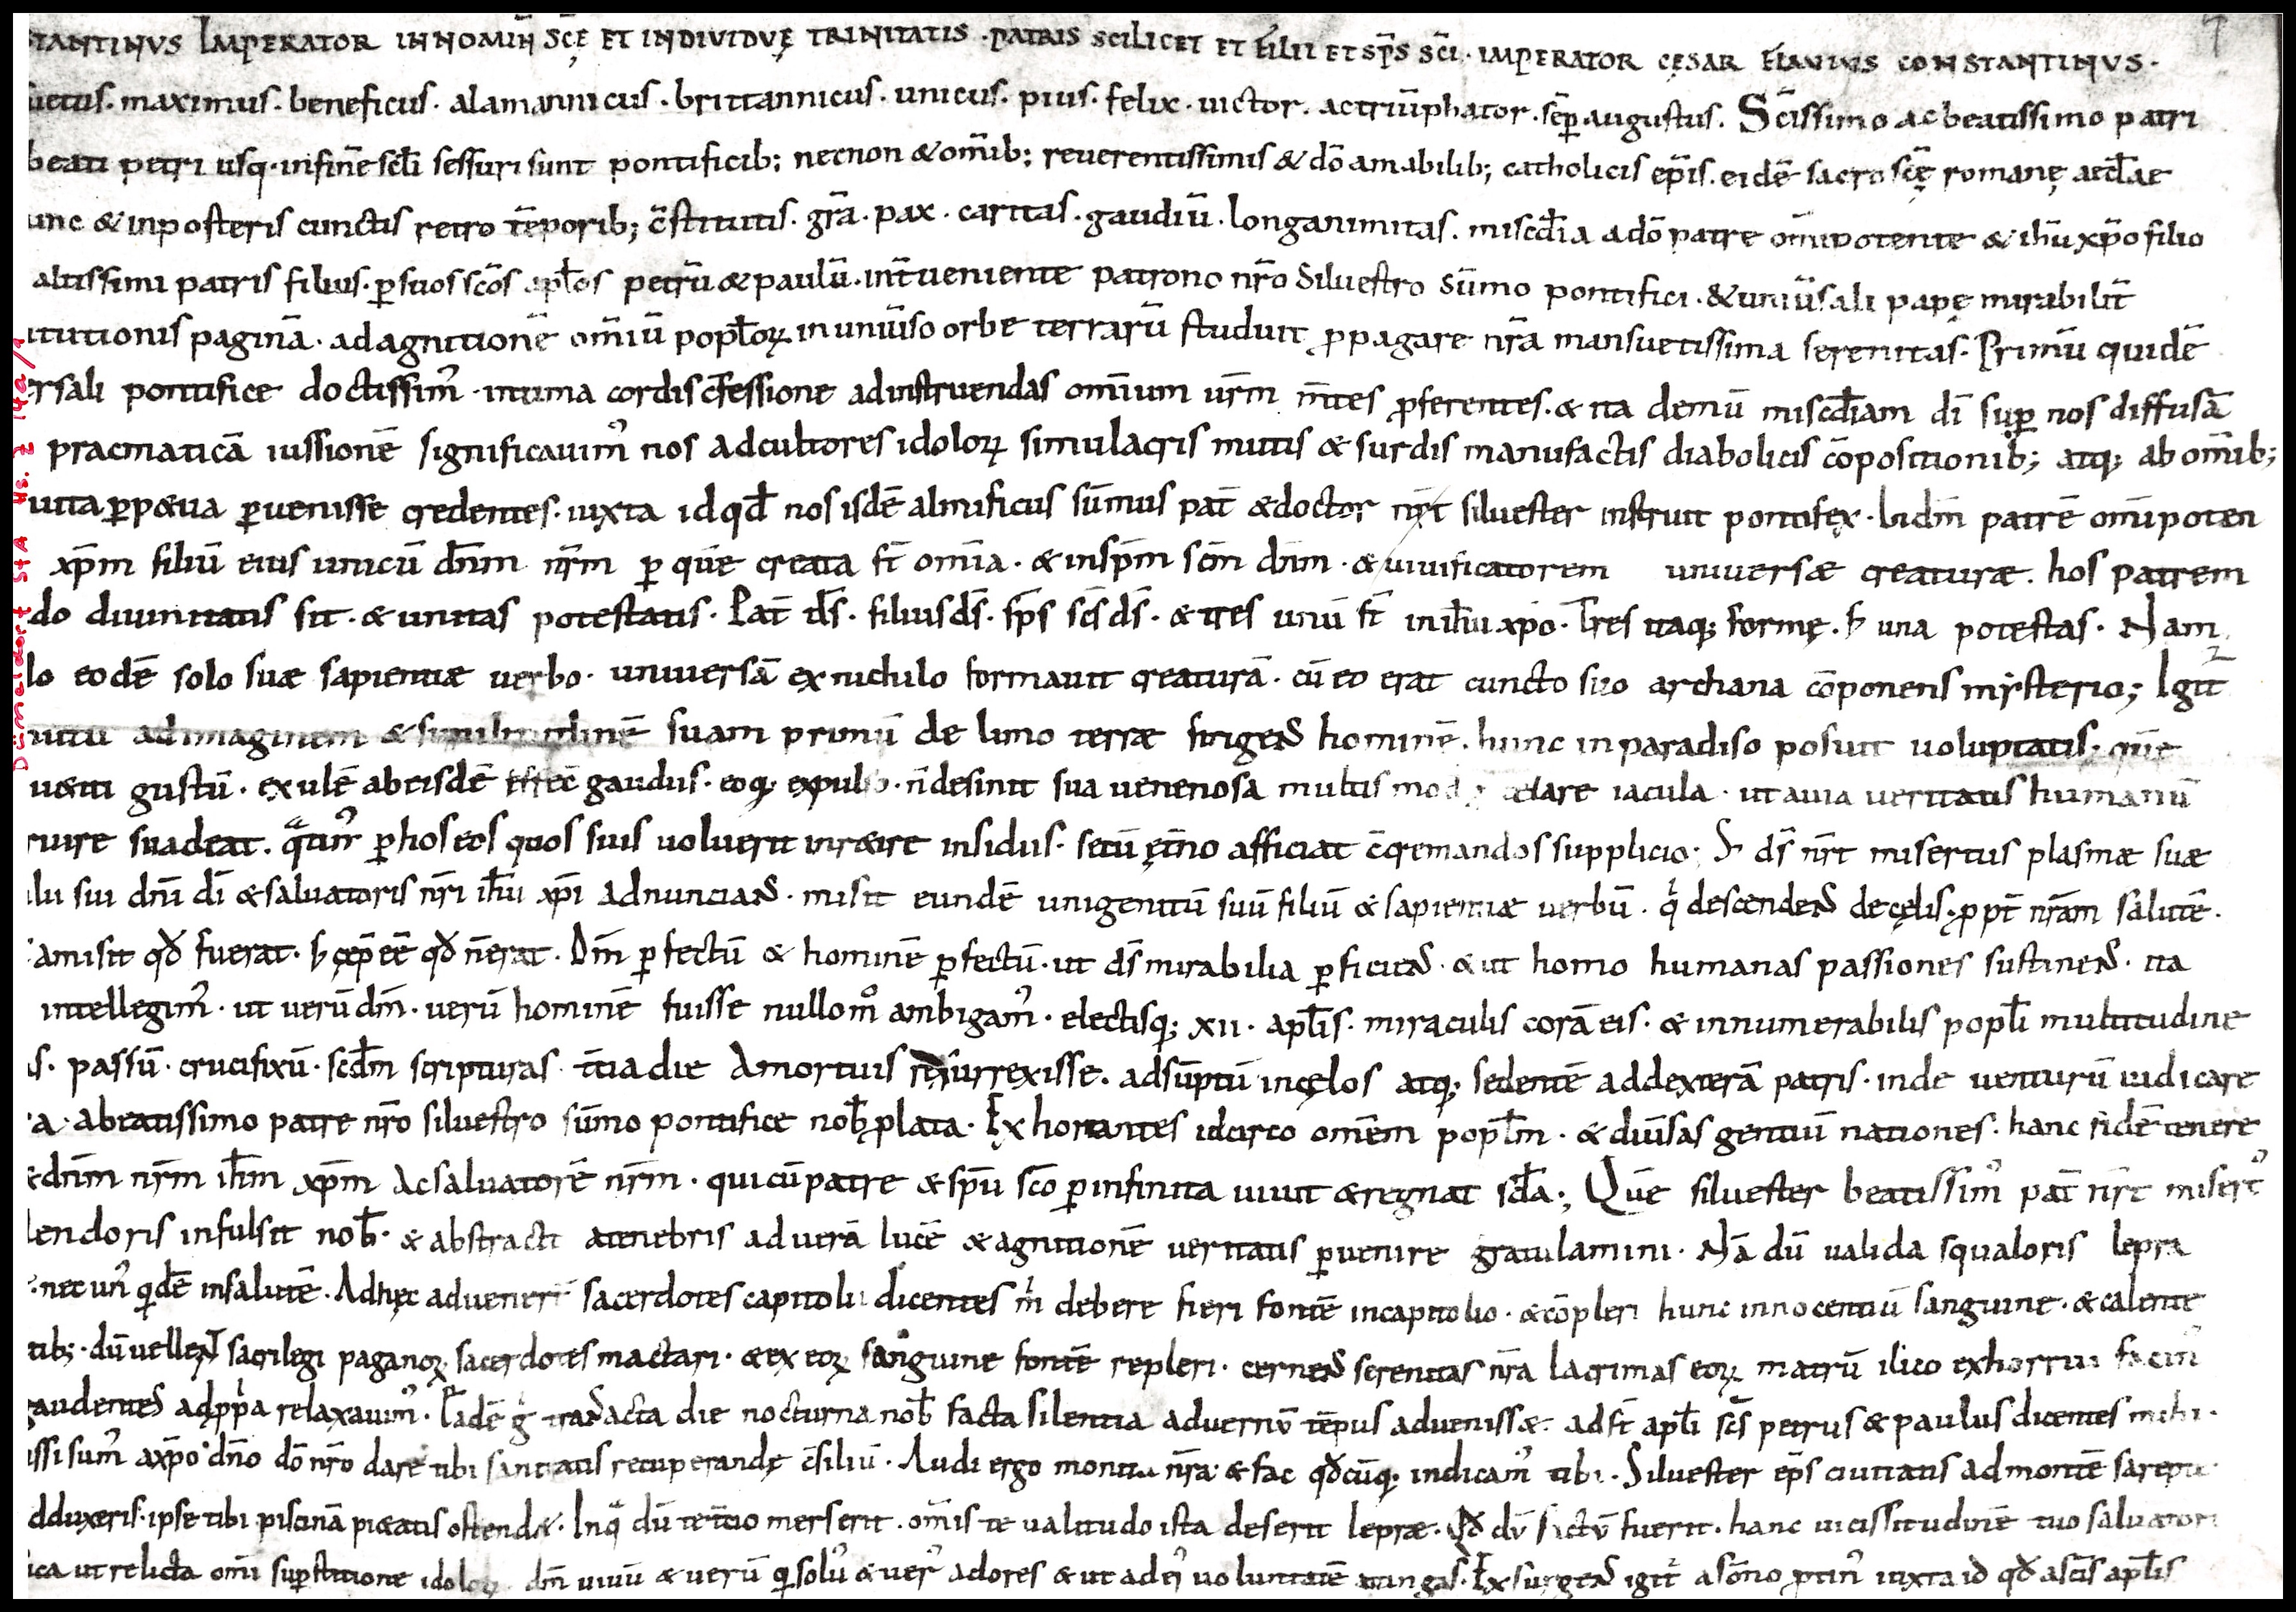 STANTINVS IMPERATOR IN NOMIÑ SC̄Ę ET INDIVIDVĘ TRINITATIS · PATRIS SCILICET ET FILII ET SP̄S SC̄I · IMPERATOR CĘSAR FLAVIUS CONSTANTINVS ·
uetus · maximus · beneficus · alamannicus · brittannicus · unicus · pius · felix · uictor · ac triūphator · sēp augustus · Sc̄issimo ac beatissimo patri
beati petri usq; in finē scłi sessuri sunt pontificib; necnon & om̄ib; reuerentissimis & dō amabilib; catholicis ep̄is · eidē sacro sc̄ę romanę aecłae
unc & in posteris cunctis retro tēporib; c̄stitutis · gr̄a · pax · caritas · gaudiū · longanimitas · misc̄dia a dō patre om̄ipotente & ih̄u xp̄o filio
altissimi patris filius · ꝑ suos sc̄os apłos petrū & paulū · int̄ueniente patrono nr̄o Siluestro Sūmo pontifici · & uniūsali papę mirabilit̄
itutionis paginā · ad agnitionē om̄iū popłoꝝ in uniūso orbe terrarū studuit ꝓpagare nr̄a mansuetissima serenitas · Primū quidē
ersali pontifice doctissim᾿ · intima cordis c̄fessione ad instruendas omnium ur̄m m̄tes ꝓferentes · & ita demū misc̄diam dī suꝑ nos diffusā
pracmaticā iussionē significauim᾿ nos ad cultores idoloꝝ simulacris mutis & surdis manufactis diabolicis cōpositionib; atq; ab om̄ib;
uita ꝑp&ua ꝑuenisse credentes · iuxta id qđ nos isdē almificus sūmus pat̄ & doctor nr̄t siluester instruit pontifex · Indm̄ patrē om̄ipoten
xp̄m filiū eius unicū dn̄m nr̄m ꝑ quē creata st̄ om̄ia · & in sp̄m sc̄m dn̄m · & uiuificatorem uniuersæ creaturæ · hos patrem
do diuinitatis sit · & unitas potestatis · Pat̄ ds̄ · filius ds̄ · sp̄s sc̄s ds̄ · & tres unū st̄ in ih̄u xp̄o · Tres itaq; formę · ꞩ una potestas · Nam
lo eodē solo suæ sapientiæ uerbo · uniuersā ex nichilo formauit creaturā · cū eo erat cuncto suo archana cōponens mysterio; Igit᾿
ad imaginem & similitudinē suam primū de limo terræ fingenS hominē · hunc in paradiso posuit uoluptatis · quē
gustū · exulē ab eisdē effec̄ gaudiis · eoq; expulso · n̄ desinit sua uenenosa multis iacula · ut a uia ueritatis humanū
ruire suadeat · ꝑ hos eos quos suis uoluerit insidiis · secū ęt̄no afficiat c̄cremandos supplicio · S; ds̄ nr̄t misertus plasmæ suæ
lii sui dn̄i dī & saluatoris nr̄i ih̄u xp̄i adnuncianS · misit eundē unigenitū suū filiū & sapientiæ uerbū · q̇ descendenS de cęlis · ꝓpt̄ nr̄am salutē ·
amisit qđ fuerat · ꞩ cęp̄ eē qđ n̄ erat · Dm̄ ꝑfectū & hominē ꝑfectū · ut ds̄ mirabilia ꝑficienS · & ut homo humanas passiones sustinenS · ita
intellegim᾿ · ut uerū dm̄ · uerū hominē fuisse nullo m̊ ambigam᾿ · electisq; xii · apłis · miraculis corā eis · & innumerabilis popłi multitudine
s · passū · crucifixū · scđm scripturas · t̄tia die A mortuis resurrexisse · adsūptū in cęlos atq; sedentē ad dexterā patris · inde uenturū iudicare
a · a beatissimo patre nr̄o siluestro sūmo pontifice nob̄ ꝓlata · Exhortantes idcirco omēm popłm · & diūsas gentiū nationes · hanc fidē tenere
& dn̄m nr̄m ih̄m xp̄m Ac saluatorē nr̄m · qui cū patre & sp̄u sc̄o ꝑ infinita uiuit & regnat scła; Quē siluester beatissim᾿ pat̄ nr̄t misert᾿
lendoris infulsit nob̄ · & abstracti a tenebris ad uerā lucē & agnitionē ueritatis ꝑuenire gratulamini · Nā dū ualida squaloris lepra
nec un᾿ q̇dē in salutē · Ad hęc aduener̄ sacerdotes capitolii dicentes m̊ debere fieri fontē in capitolio · & cōpleri hunc innocentiū sanguine · & calente
tib; · dū uellent sacrilegi paganoꝝ sacerdotes mactari · & ex eoꝝ sanguine fontē repleri · cernenS serenitas nr̄a lacrimas eoꝝ matrū ilico exhorrui facin᾿
gaudentes ad ꝓpria relaxauim᾿ · Eadē g̊ transacta die nocturna nob̄ facta silentia aduenissæ · adst̄ apłi sc̄s petrus & paulus dicentes mihi ·
issi sum᾿ a xp̄o dn̄o dō nr̄o dare tibi sanitatis recuperandę c̄siliū · Audi ergo monita nr̄a & fac qđcūq; indicam᾿ tibi · Siluester ep̄s ciuitatis ad montē
dduxeris · ipse tibi piscinā pi&atis · Inq̄ dū te t̄tio merserit · om̄is te ualitudo ista deserit lepræ · Qđ dū factū fuerit · hanc uicissitudinē tuo saluatori
ica ut relicta om̄i suꝑstitione idoloꝝ dm̄ uiuū & uerū q̇ sol᾿ & uer᾿ adores & ut ad ei᾿ uoluntatē attingas · ExsurgenS igit᾿ a sōno ꝓtin᾿ iuxta id qđ a sc̄is apłis